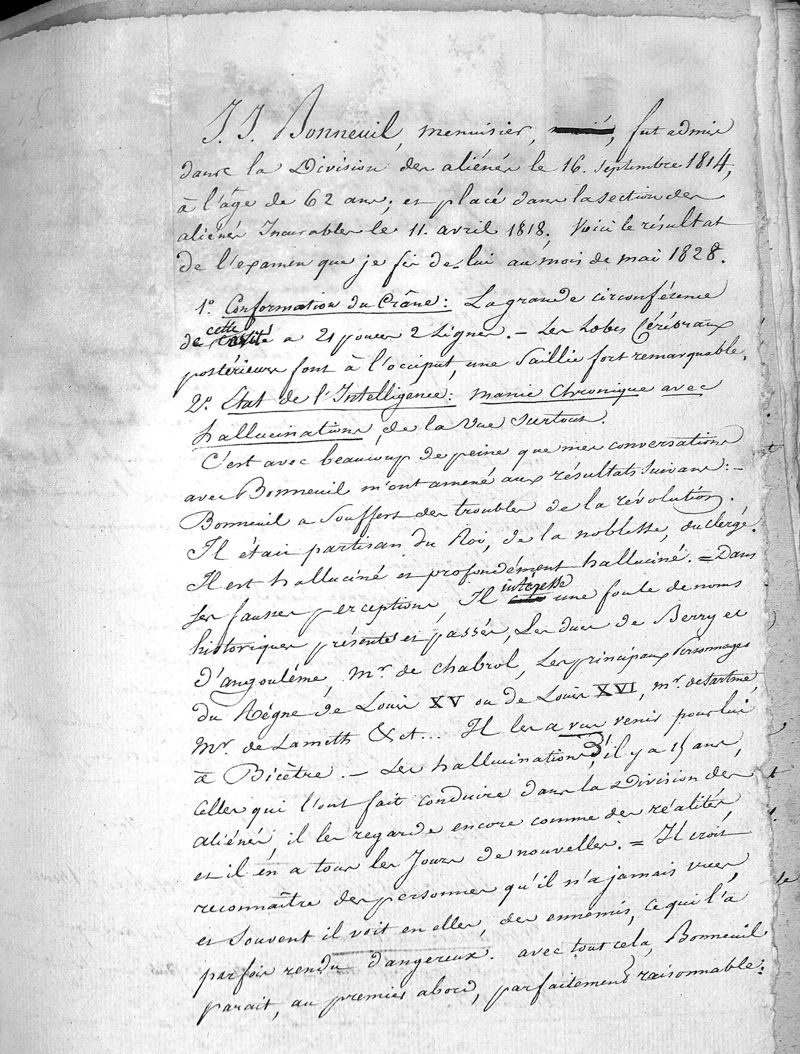 J. J. Bonneuil, menuisier, marié, fut admis
dans la Division des aliénés le 16. Septembre 1814,
à l'âge de 62 ans; et placé dans la section des
aliénés Incurables le 11. avril 1818. Voici le résultat
de l'examen que je fis de lui au mois de mai 1828.
1º Conformation du Crâne: La grande circonférence
de cette cavité a 21 pouces 2 lignes. - Les Lobes Cérébraux
postérieurs font à l'occiput, une Saillie fort remarquable.
2º Etat de l'Intelligence: manie Chronique avec
hallucinations, de la vue surtout.
C'est avec beaucoup de peine que mes conversations
avec Bonneuil m'ont amené aux résultats suivans: -
Bonneuil a souffert des troubles de la révolution.
Il était partisan du Roi, de la noblesse, du clergé.
Il est halluciné et profondément halluciné. = Dans
ses fausses perceptions, Il intéresse une foule de noms
historiques présents et passés, Les ducs de Berry et
d'angoulême, mr. de Chabrol, Les principaux Personnages
du Règne de Louis XV ou de Louis XVI, mr. de Sartine,
Mr. de Lameth &ct... Il les a vus venir pour lui
à Bicêtre. - Les hallucinations d'il y a 15 ans,
Celles qui l'ont fait conduire dans la Division des
aliénés, il les regarde encore comme des réalités,
et il en a tous les Jours de nouvelles. = Il croit
reconnaître des personnes qu'il n'a jamais vues,
et souvent il voit en elles, des ennemis, ce qui l'a
parfois rendu dangereux. avec tout cela, Bonneuil
parait, au premier abord, parfaitement raisonnable: